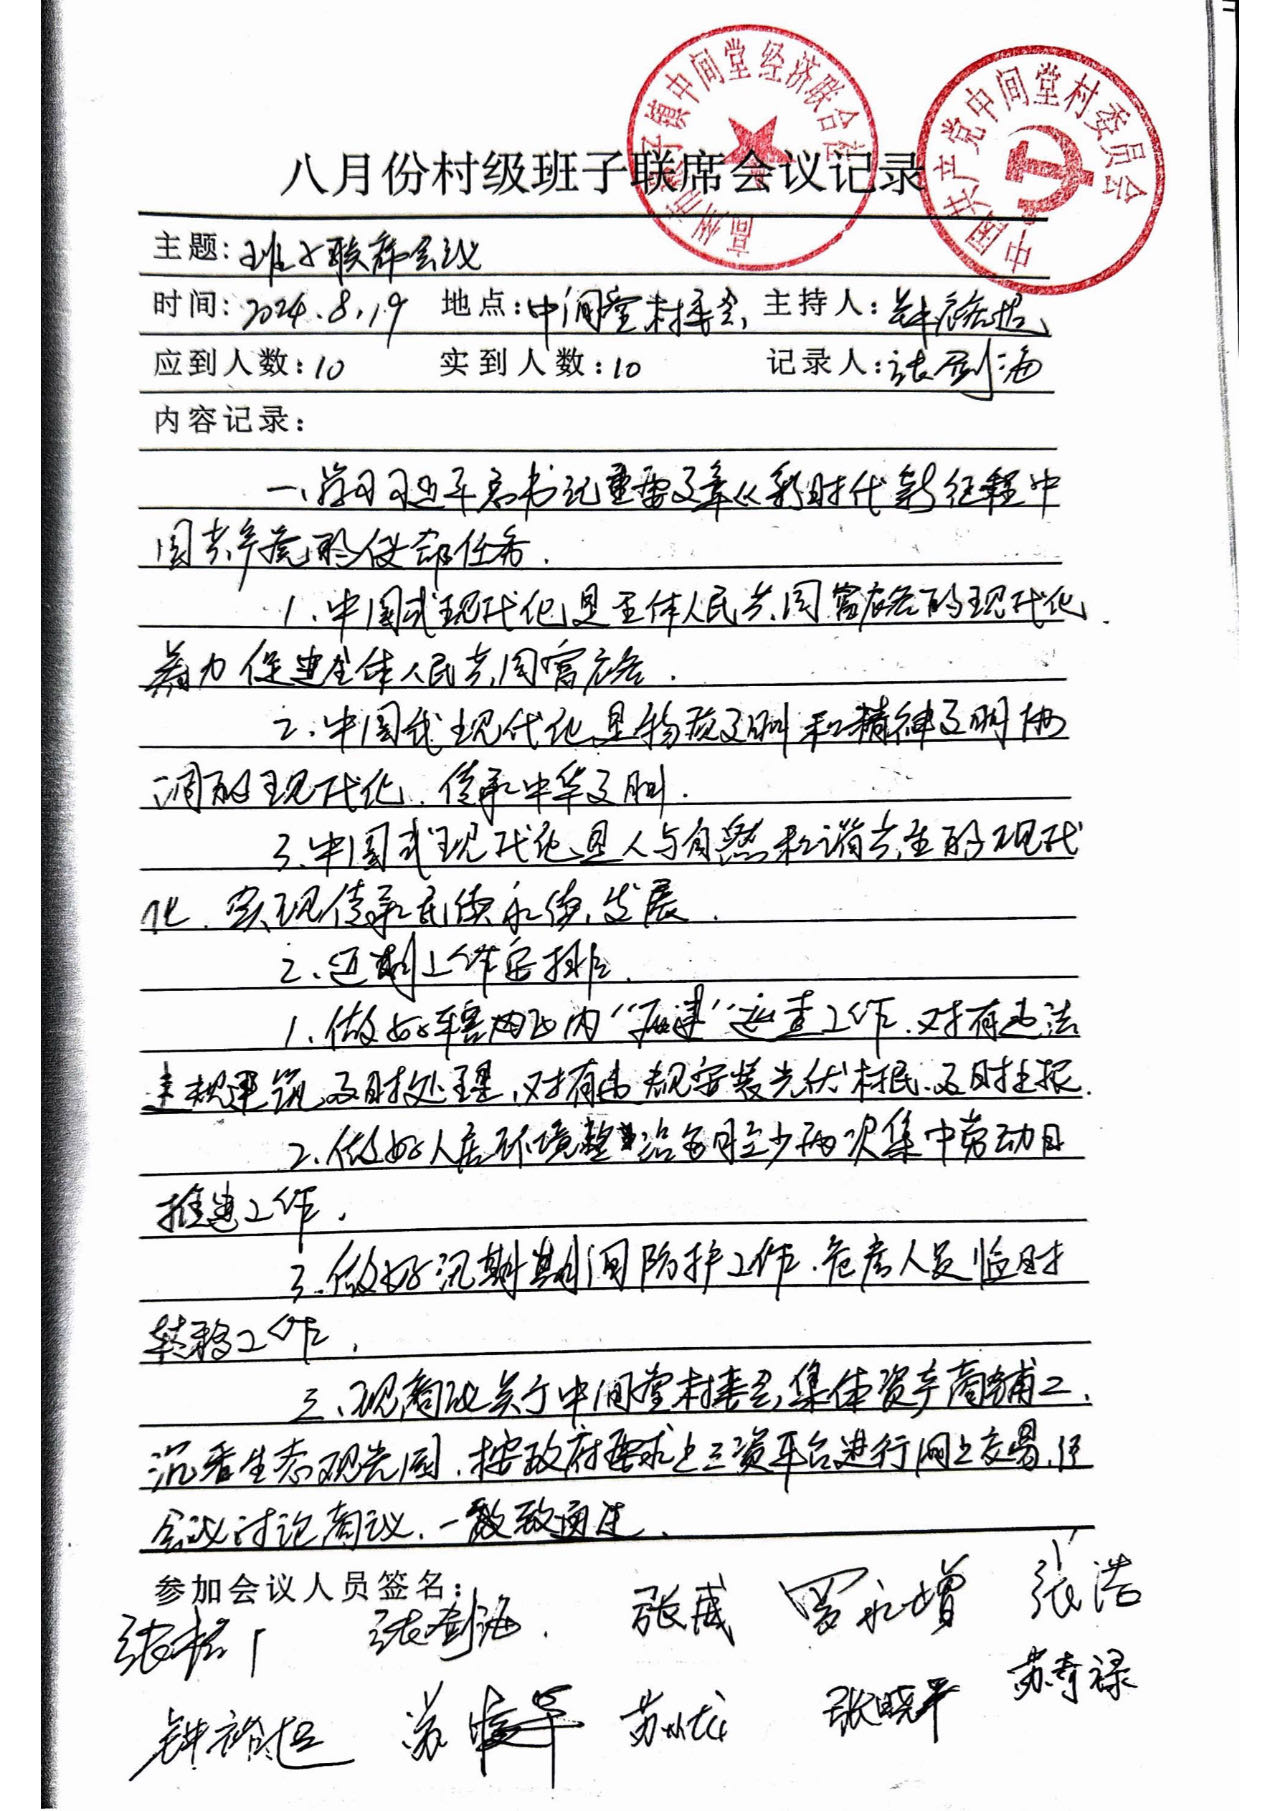 中间堂经济联合社
中国共产党中间堂村委员会
八月份村级班子联席会议记录
主题:班子联席会议
时间:2024.8.19 地点:中间堂村委会 主持人:钟裕超
应到人数:10 实到人数:10 记录人:张剑海
内容记录:
一、学习习近平总书记重要文章《新时代新征程中
国共产党的使命任务.
1、中国式现代化是全体人民共同富裕的现代化.
着力促进全体人民共同富裕.
2、中国式现代化是物质文明和精神文明协
调的现代化、传承中华文明.
3、中国式现代化是人与自然和谐共生的现代
化、实现传承民族永续发展.
2、近期工作安排.
1、做好辖内"两违"巡查工作、对有违法
违规建筑及时处理、对有违规安装光伏村民及时上报.
2、做好人居环境整治每月至少两次集中劳动日
推进工作.
3、做好汛期期间防护工作、危房人员临时
转移工作.
三、现商议关于中间堂村委会集体资产商铺二、
沉香生态观光园、按政府要求上三资平台进行网上交易、经
会议讨论商议、一致通过.
参加会议人员签名:
张剑海 张成 罗永增 张浩
钟裕超 张晓平 苏奇禄